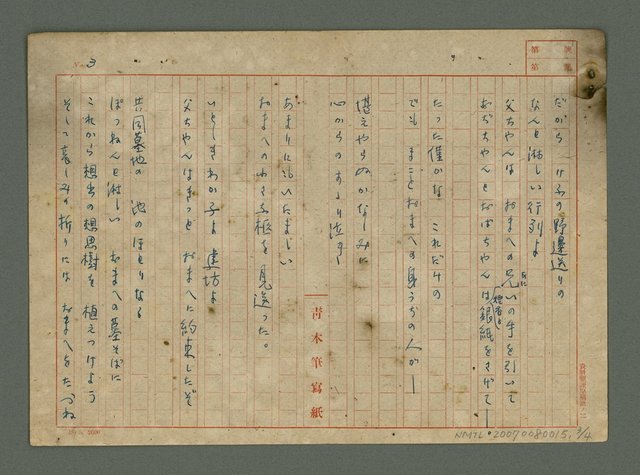 だから けふの野邊送りの
なんと淋しい行列よ
父ちやんは おまへの兄いの手を引いて
おぢちやんとおばちやんは銀紙をさげて—
たつた僅かな これだけの
でも まことおまへの身うちの人が—
堪えやらぬかなしみに
心からの
あまりに いたましい
おまへの 柩を 見送つた。
いとしきわが子よ 建坊よ
父ちやんはきつと おまへに約束したぞ
共同墓地の 池のほとりなる
ぽつねんと淋しい おまへの墓そばに
これから想出の想思樹を 植えつけよう
そして哀しみの折りには おまへをたづね
青木筆寫紙
No. 3
第 號
第 葉
NMTL 20070080015, 3/4